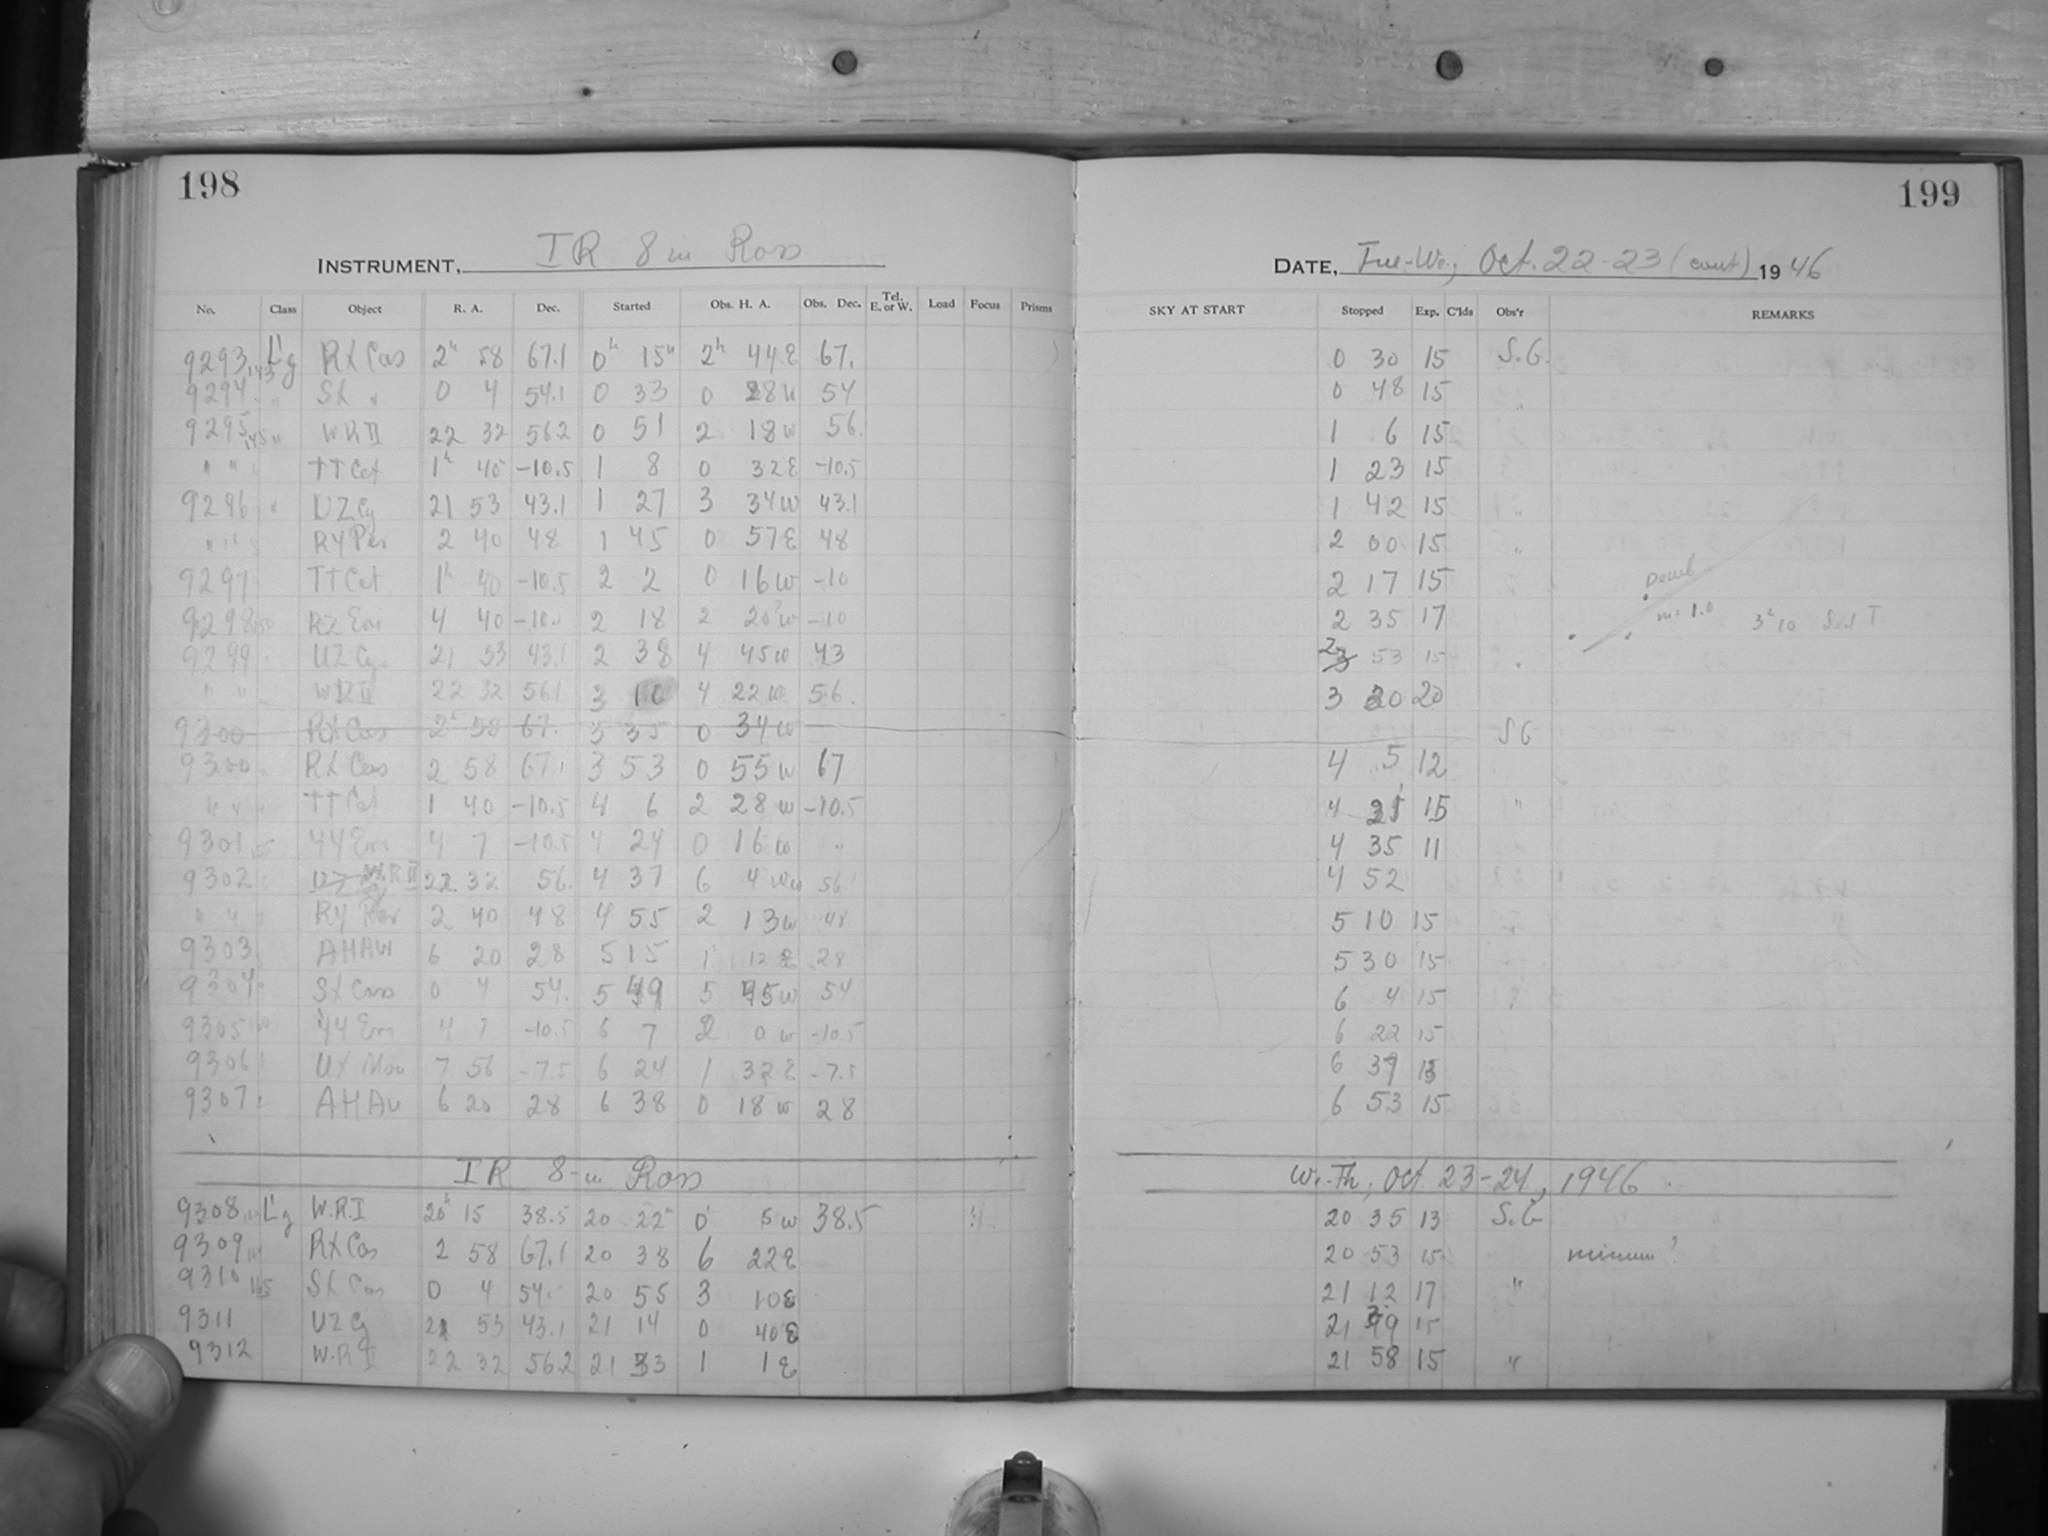 198
INSTRUMENT, IR 8 in Ross
No. Class Object R. A. Dec. Started Obs. H. A. Obs. Dec. Tel. E. or W. Load Focus Prisms
9293 L'g RX Cas 2h 58 67.1 0h 15m 2h 44 E 67.
9294 " SX " 0 4 54.1 0 33 0 28 W 54
9295 " W.R II 22 32 56.2 0 51 2 18 W 56.
" " " TT Cet 1h 40 -10.5 1 8 0 32 E -10.5
9296 " UZ Cyg 21 53 43.1 1 27 3 34 W 43.1
" " " RY Per 2 40 48 1 45 0 57 E 48
9297 TT Cet 1h 40 -10.5 2 2 0 16 W -10
9298 RZ Eri 4 40 -10. 2 18 2 20 W -10
9299 UZ Cyg 21 53 43.1 2 38 4 45 W 43
" " " WR II 22 32 56.1 3 10 4 22 W 56.
9300 RX Cas 2h 58 67. 3 35 0 34 W
9300 RX Cas 2 58 67.1 3 53 0 55 W 67
" " TT Cet 1 40 -10.5 4 6 2 28 W -10.5
9301 YY Eri 4 7 -10.5 4 24 0 16 W "
9302 W.R II 22 32 56. 4 37 6 4 W 56
" " RY Per 2 40 48 4 55 2 13 W 48
9303 AHAur 6 20 28 5 15 1 12 E 28
9304 SX Cass 0 4 54. 5 49 5 45 W 54
9305 YY Eri 4 7 -10.5 6 7 2 0 W -10.5
9306 UX Mon 7 56 -7.5 6 24 1 32 E -7.5
9307 AHAu 6 20 28 6 38 0 18 W 28
IR 8-in Ross
9308 L'g W.R.I 20h 15 38.5 20 22m 0 5 W 38.5
9309 RX Cas 2 58 67.1 20 38 6 22 E
9310 SX Cas 0 4 54. 20 55 3 10 E
9311 UZ Cyg 21 53 43.1 21 14 0 40 E
9312 W.R II 22 32 56.2 21 33 1 1 E
199
DATE, Tue-We, Oct. 22-23 (cont) 1946
SKY AT START Stopped Exp. C'lds Obs'r REMARKS
0 30 15 S.G.
0 48 15 "
1 6 15
1 23 15
1 42 15 "
2 00 15 "
2 17 15
m=1.0
2 35 17 3h 10
2 53 15 "
3 30 20
S G
4 5 12
4 21 15 "
4 35 11
4 52
5 10 15 "
5 30 15
6 4 15 "
6 22 15
6 39 15
6 53 15
We-Th, Oct 23-24, 1946
20 35 13 S.G
20 53 15 minimum?
21 12 17 "
21 29 15
21 58 15 "